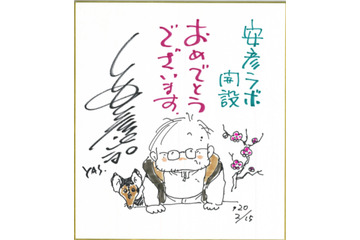 安彦ラボ
開設
おめでとう
ございます。
YAS.
'20
3/15